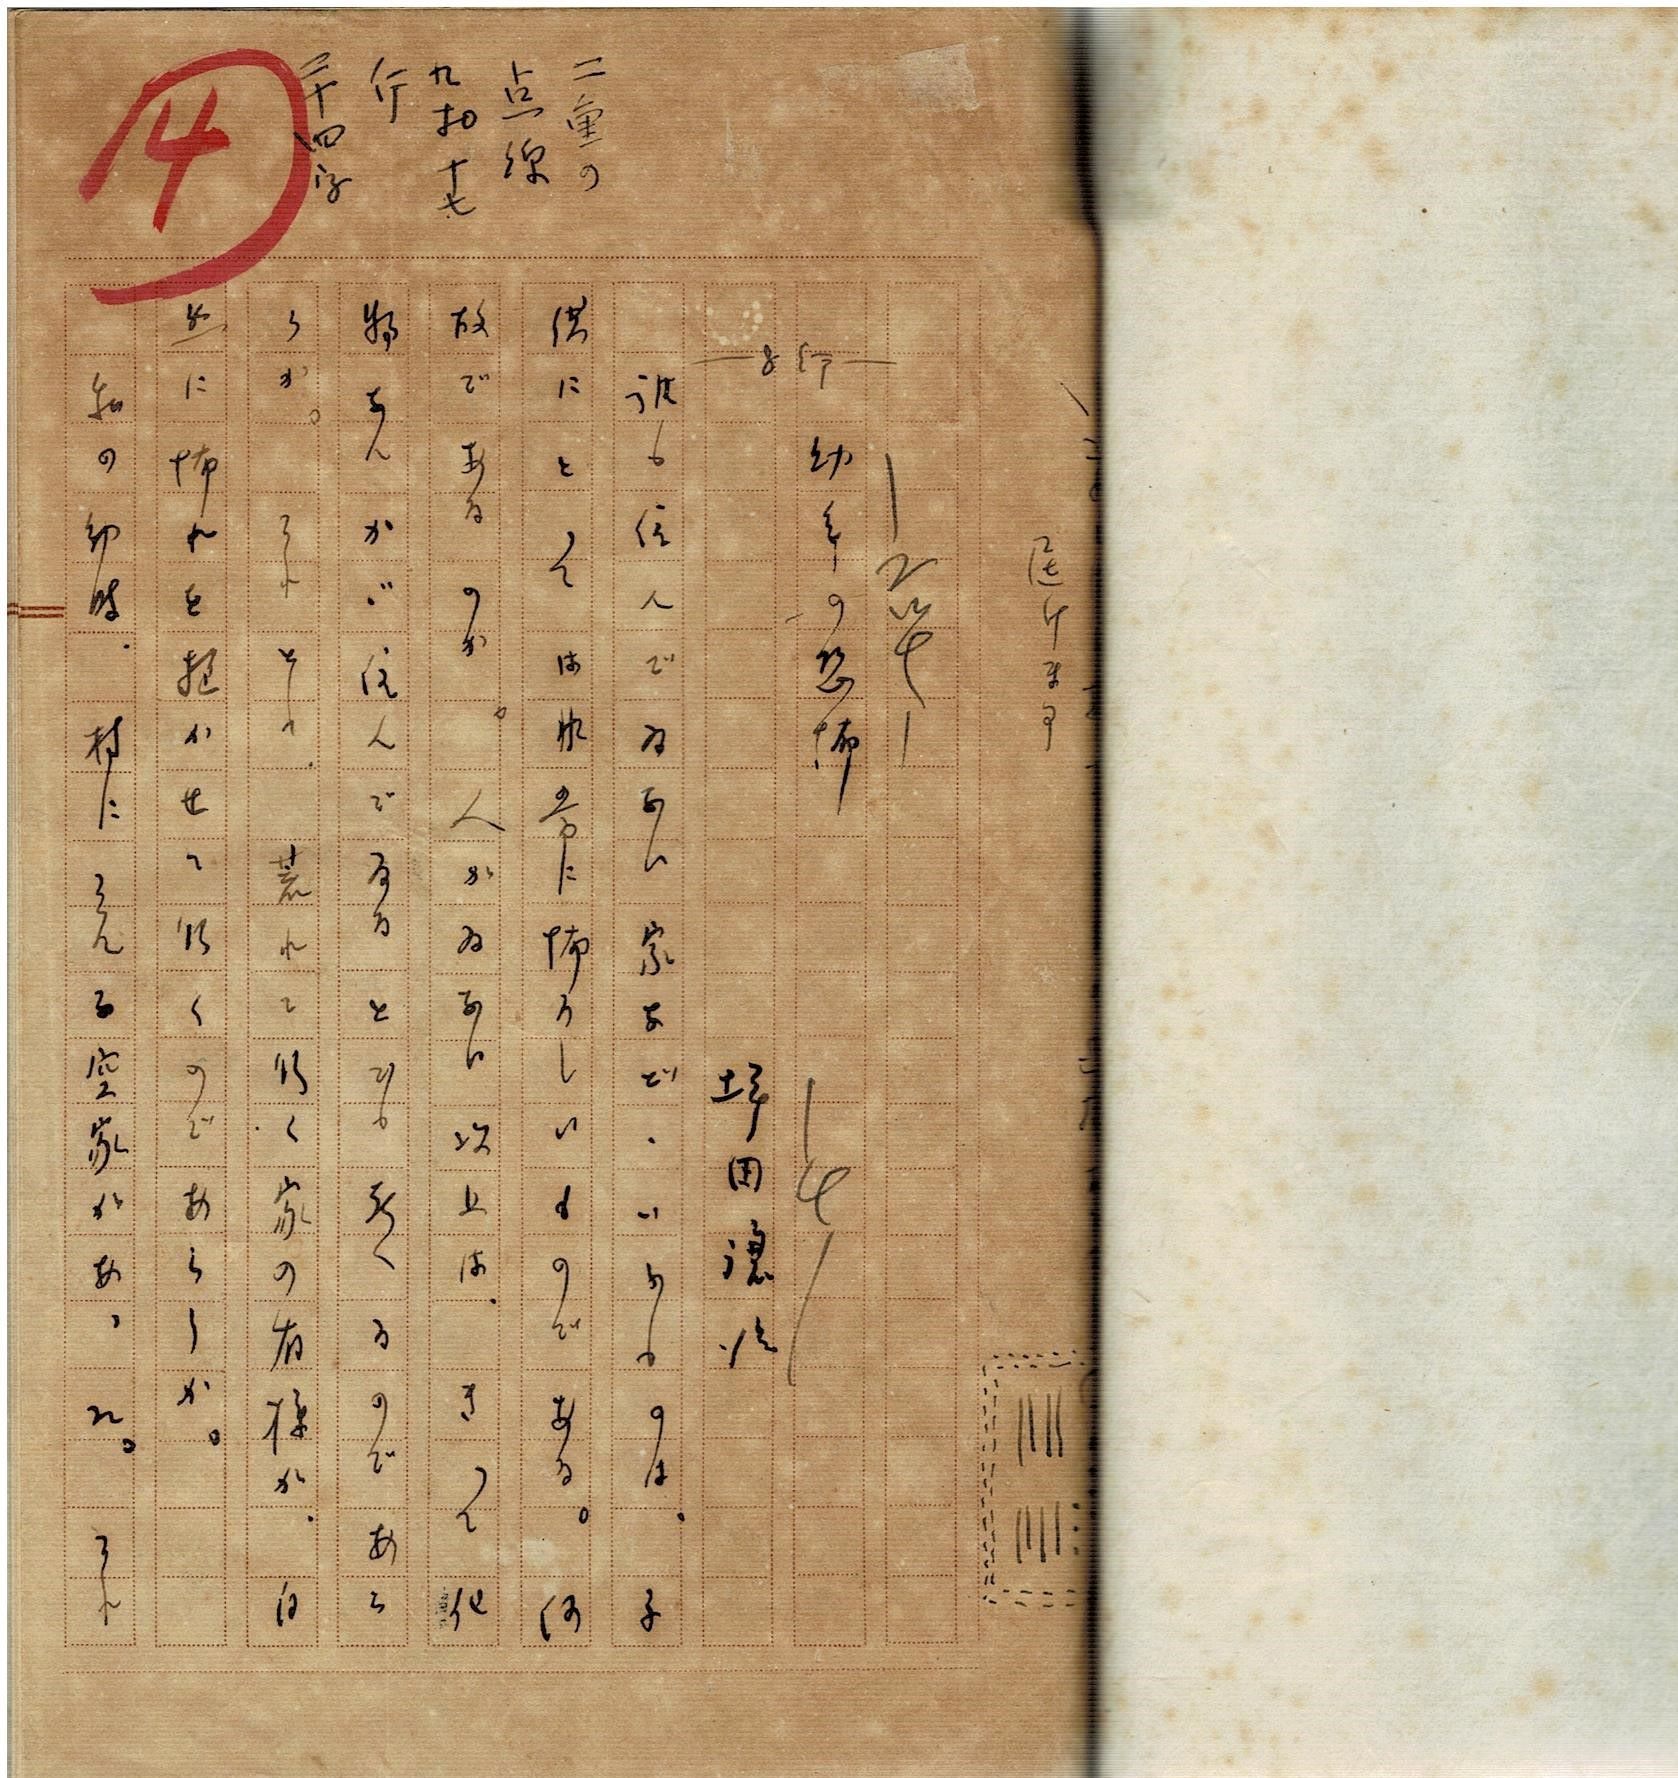 二重の
点線
九ポ十七
行
二十四字
4
2号4
幼年の恐怖
4
坪田譲治
誰も住んでゐない家など、いふものは、子
供にとつては非常に怖ろしいものである。何
故であるのか。人がゐない以上は、きつと化
物なんかが住んでゐるとでも考へるのであら
うか。それとも、荒れて行く家の有様が、自
然に怖れを抱かせて行くのであらうか。
私の幼時、村にそんな空家があつた。それ